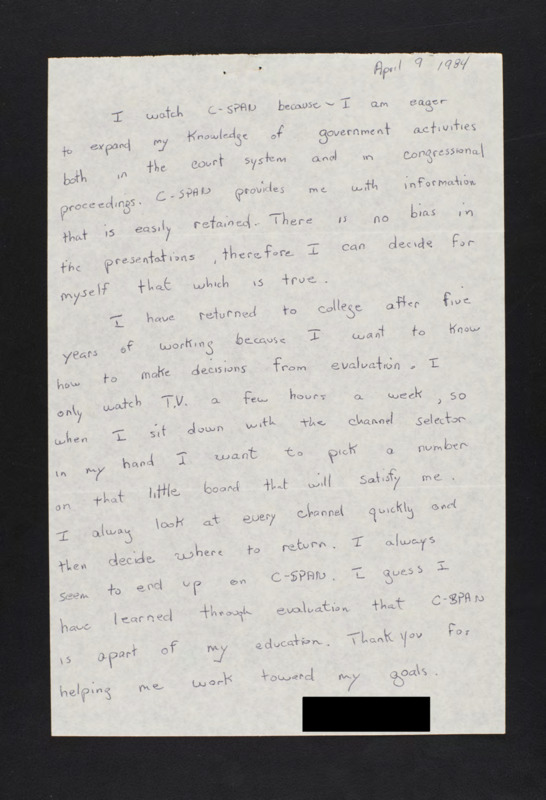 April 9 1984
I watch C-SPAN because~I am eager
to expand my knowledge of government activities
both in the court system and in congressional
proceedings. C-SPAN provides me with information
that is easily retained. There is no bias in
the presentations, therefore I can decide for
myself that which is true.
I have returned to college after five
years of working because I want to know
how to make decisions from evaluation. I
only watch T.V. a few hours a week, so
when I sit down with the channel selector
in my hand I want to pick a number
on that little board that will satisfy me.
I alway look at every channel quickly and
then decide where to return. I always
seem to end up on C-SPAN. I guess I
have learned through evaluation that C-SPAN
is apart of my education. Thank you for
helping me work toward my goals.